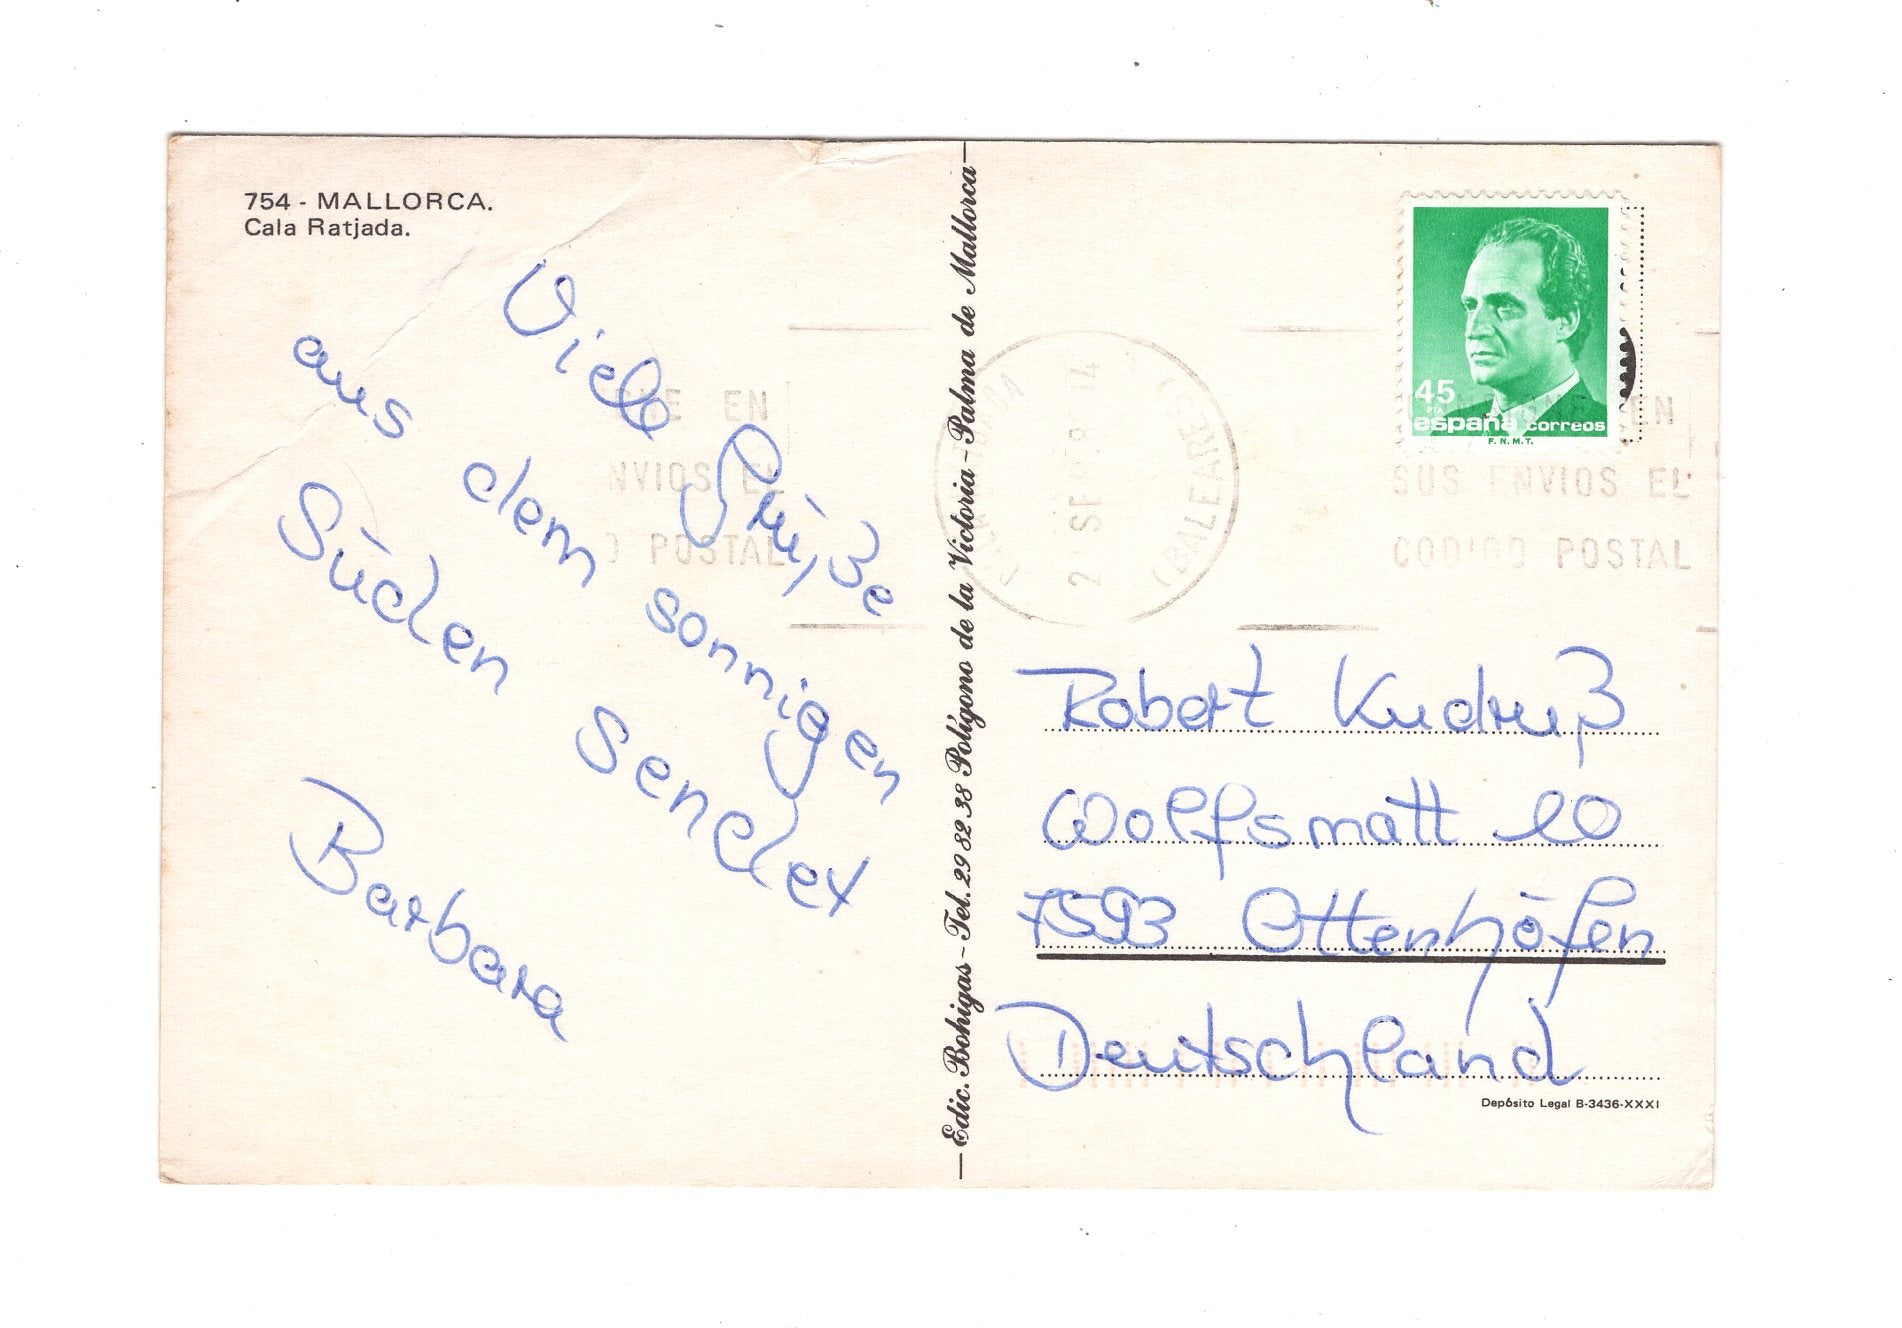 754 - MALLORCA.
Cala Ratjada.
Viele Grüße
aus dem sonnigen
Süden sendet
Barbara
Edic. Bohigas - Tel. 29 82 38 Polígono de la Victoria - Palma de Mallorca
45
PTA
españa correos
F.N.M.T.
UE EN
NVIOS EL
O POSTAL
(BALEARES)
EN
SUS ENVIOS EL
CODIGO POSTAL
Robert Kudruß
Wolfsmatt 10
7593 Ottenhöfen
Deutschland
Depósito Legal B-3436-XXXI